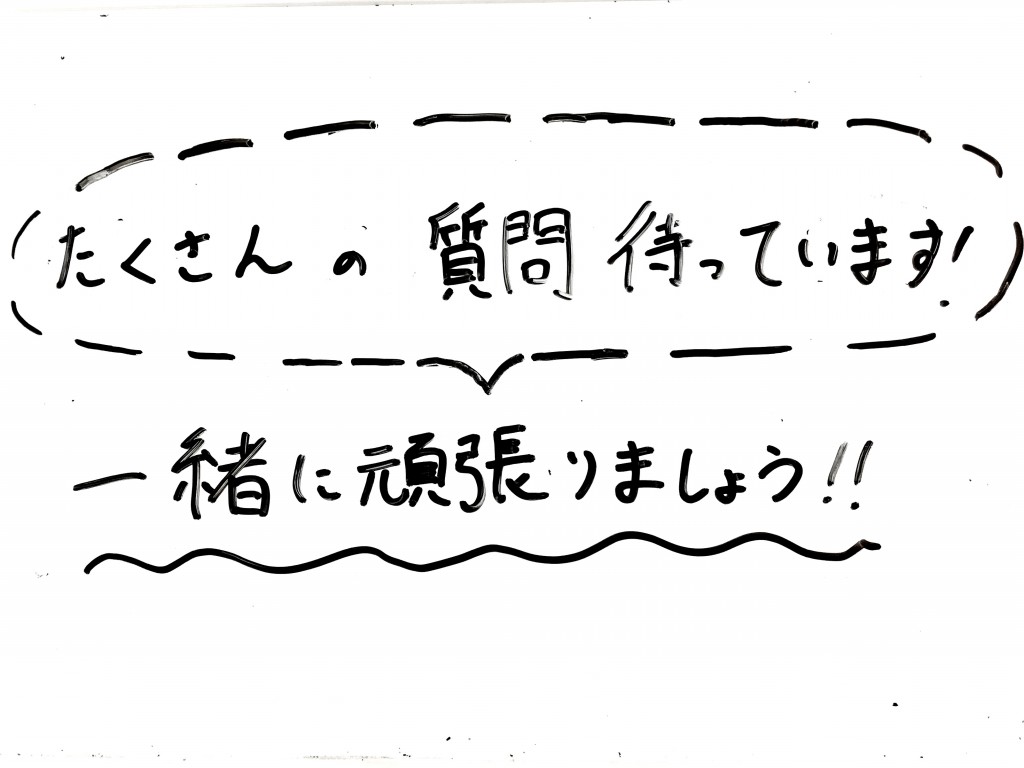 たくさんの質問待っています!
一緒に頑張りましょう!!